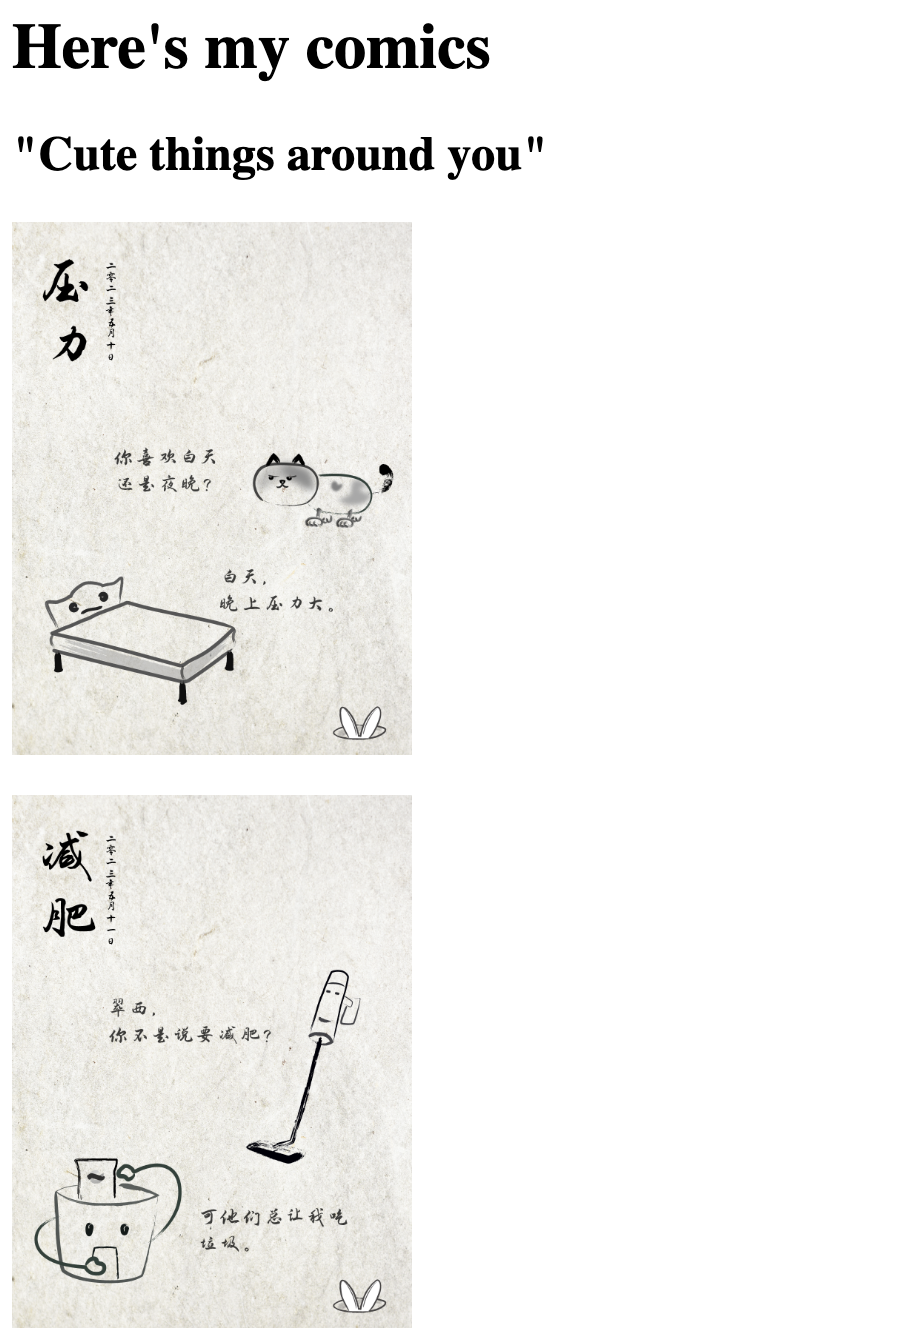 Here's my comics
"Cute things around you"
压力
二零二三年五月十日
你喜欢白天
还是夜晚？
白天，
晚上压力大。
减肥
二零二三年五月十一日
翠西，
你不是说要减肥？
可他们总让我吃
垃圾。